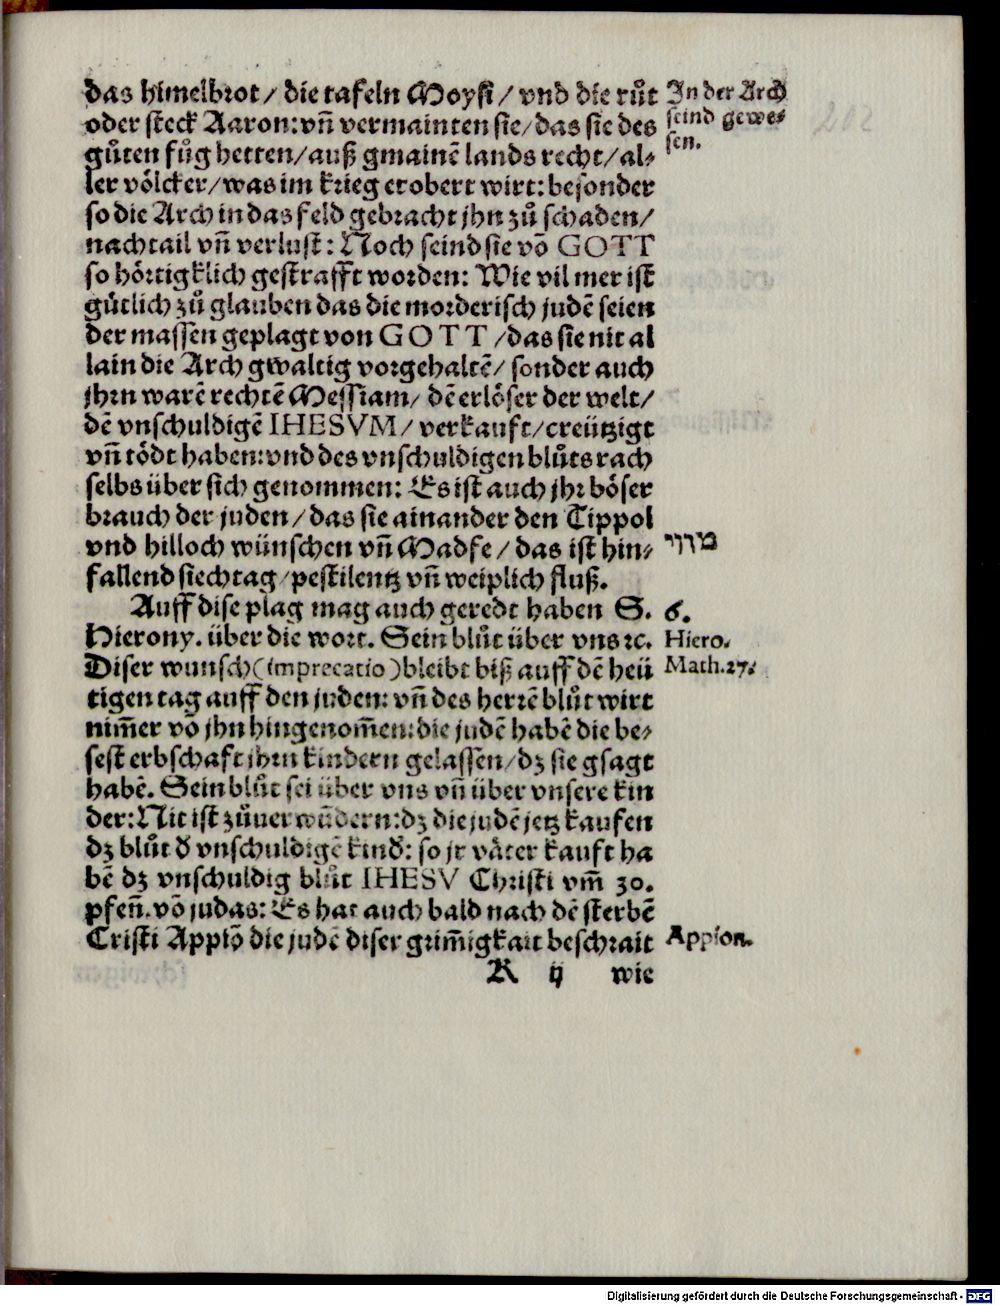 das himelbrot/ die tafeln Moysi/ vnd die růt
oder steck Aaron: vñ vermainten sie/ das sie des
gůten fůg hetten/ auß gmainẽ lands recht/ al⸗
ler völcker/ was im krieg erobert wirt: besonder
so die Arch in das feld gebracht jhn zů schaden/
nachtail vñ verlust: Noch seind sie võ GOTT
so hörtigklich gestrafft worden: Wie vil mer ist
gůtlich zů glauben das die morderisch judẽ seien
der massen geplagt von GOTT /das sie nit al
lain die Arch gwaltig vorgehaltẽ/ sonder auch
jhrn warẽ rechtẽ Messiam/ dẽ erlöser der welt/
dẽ vnschuldigẽ IHESVM/ verkauft/ creützigt
vñ tödt haben: vnd des vnschuldigen blůts rach
selbs über sich genommen: Es ist auch jhr böser
brauch der juden/ das sie ainander den Tippol
vnd hilloch wünschen vñ Madfe/ das ist hin⸗
fallend siechtag/ pestilentz vñ weiplich fluß.
Auff dise plag mag auch geredt haben S.
Hierony. über die wort. Sein blůt über vns ꝛc.
Diser wunsch (imprecatio) bleibt biß auff dẽ heü
tigen tag auff den juden: vñ des herrẽ blůt wirt
nim̃er võ jhn hingenom̃en: die judẽ habẽ die be⸗
sest erbschaft jhrn kindern gelassen/ dz sie gsagt
habẽ. Sein blůt sei über vns vñ über vnsere kin
der: Nit ist zůuerwũdern: dz die judẽ jetz kaufen
dz blůt d̕ vnschuldigẽ kind̕: so jr våter kauft ha
bẽ dz vnschuldig blůt IHESV Christi vm̃ 30.
pfeñ. võ judas: Es hat auch bald nach dẽ sterbẽ
Cristi Appiõ die judẽ diser grim̃igkait beschrait
R ij wie
In der Arch
seind gewe⸗
sen.
6.
Hiero.
Math.27.
Appion.
Digitalisierung gefördert durch die Deutsche Forschungsgemeinschaft - DFG